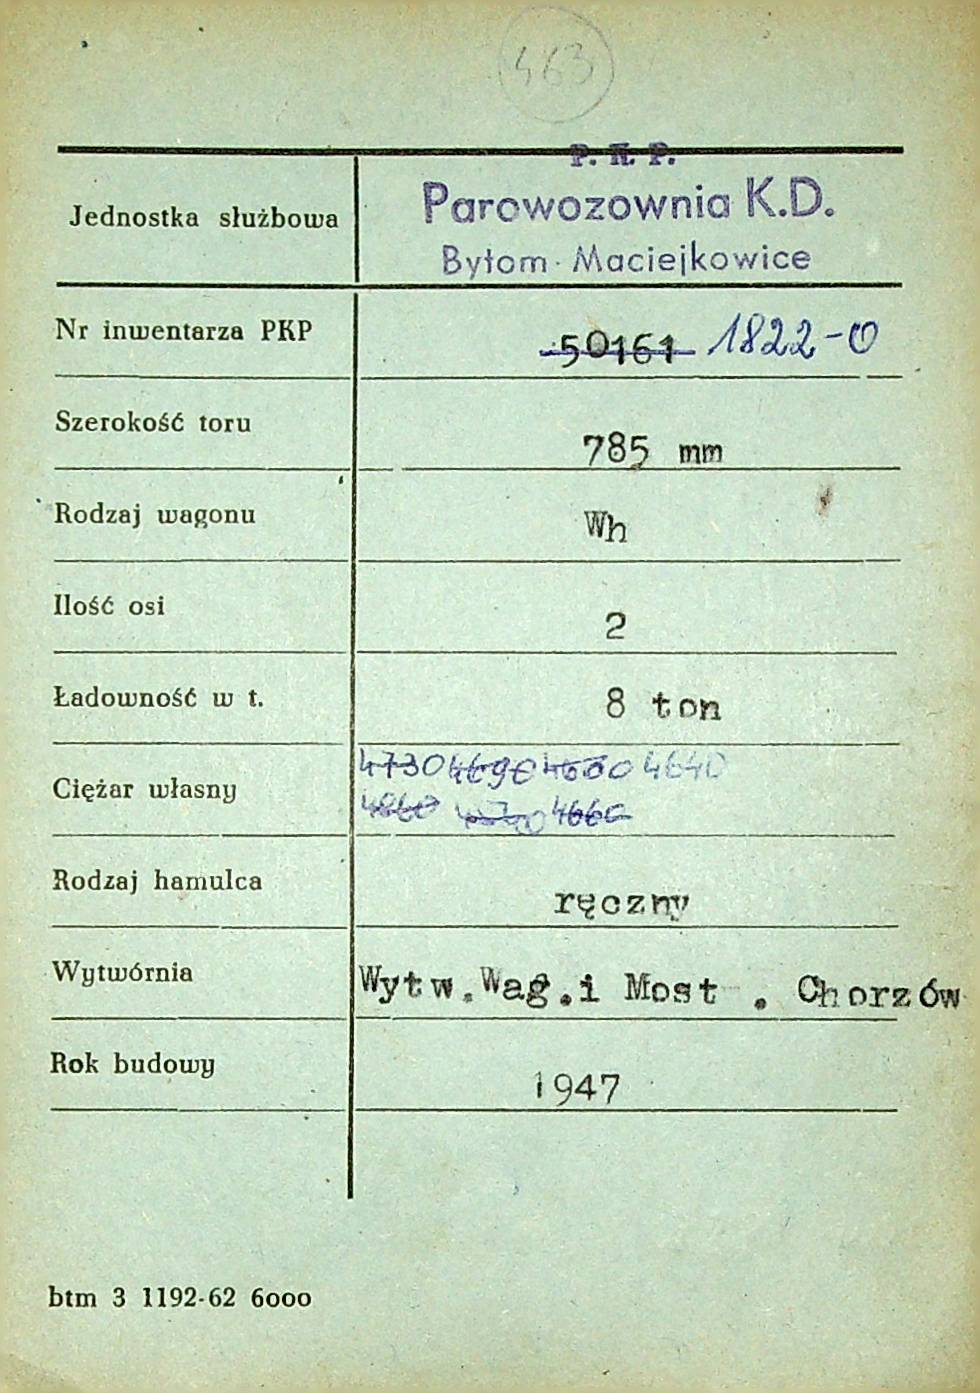 463
P. K. P.
Jednostka służbowa Parowozownia K.D.
Bytom-Maciejkowice
Nr inwentarza PKP 50161 1822-0
Szerokość toru 785 mm
Rodzaj wagonu Wh
Ilość osi 2
Ładowność w t. 8 ton
4730 4690 4600 4640
Ciężar własny 4660
Rodzaj hamulca ręczny
Wytwórnia Wytw.Wag.i Most . Chorzów
Rok budowy 1947
btm 3 1192-62 6000